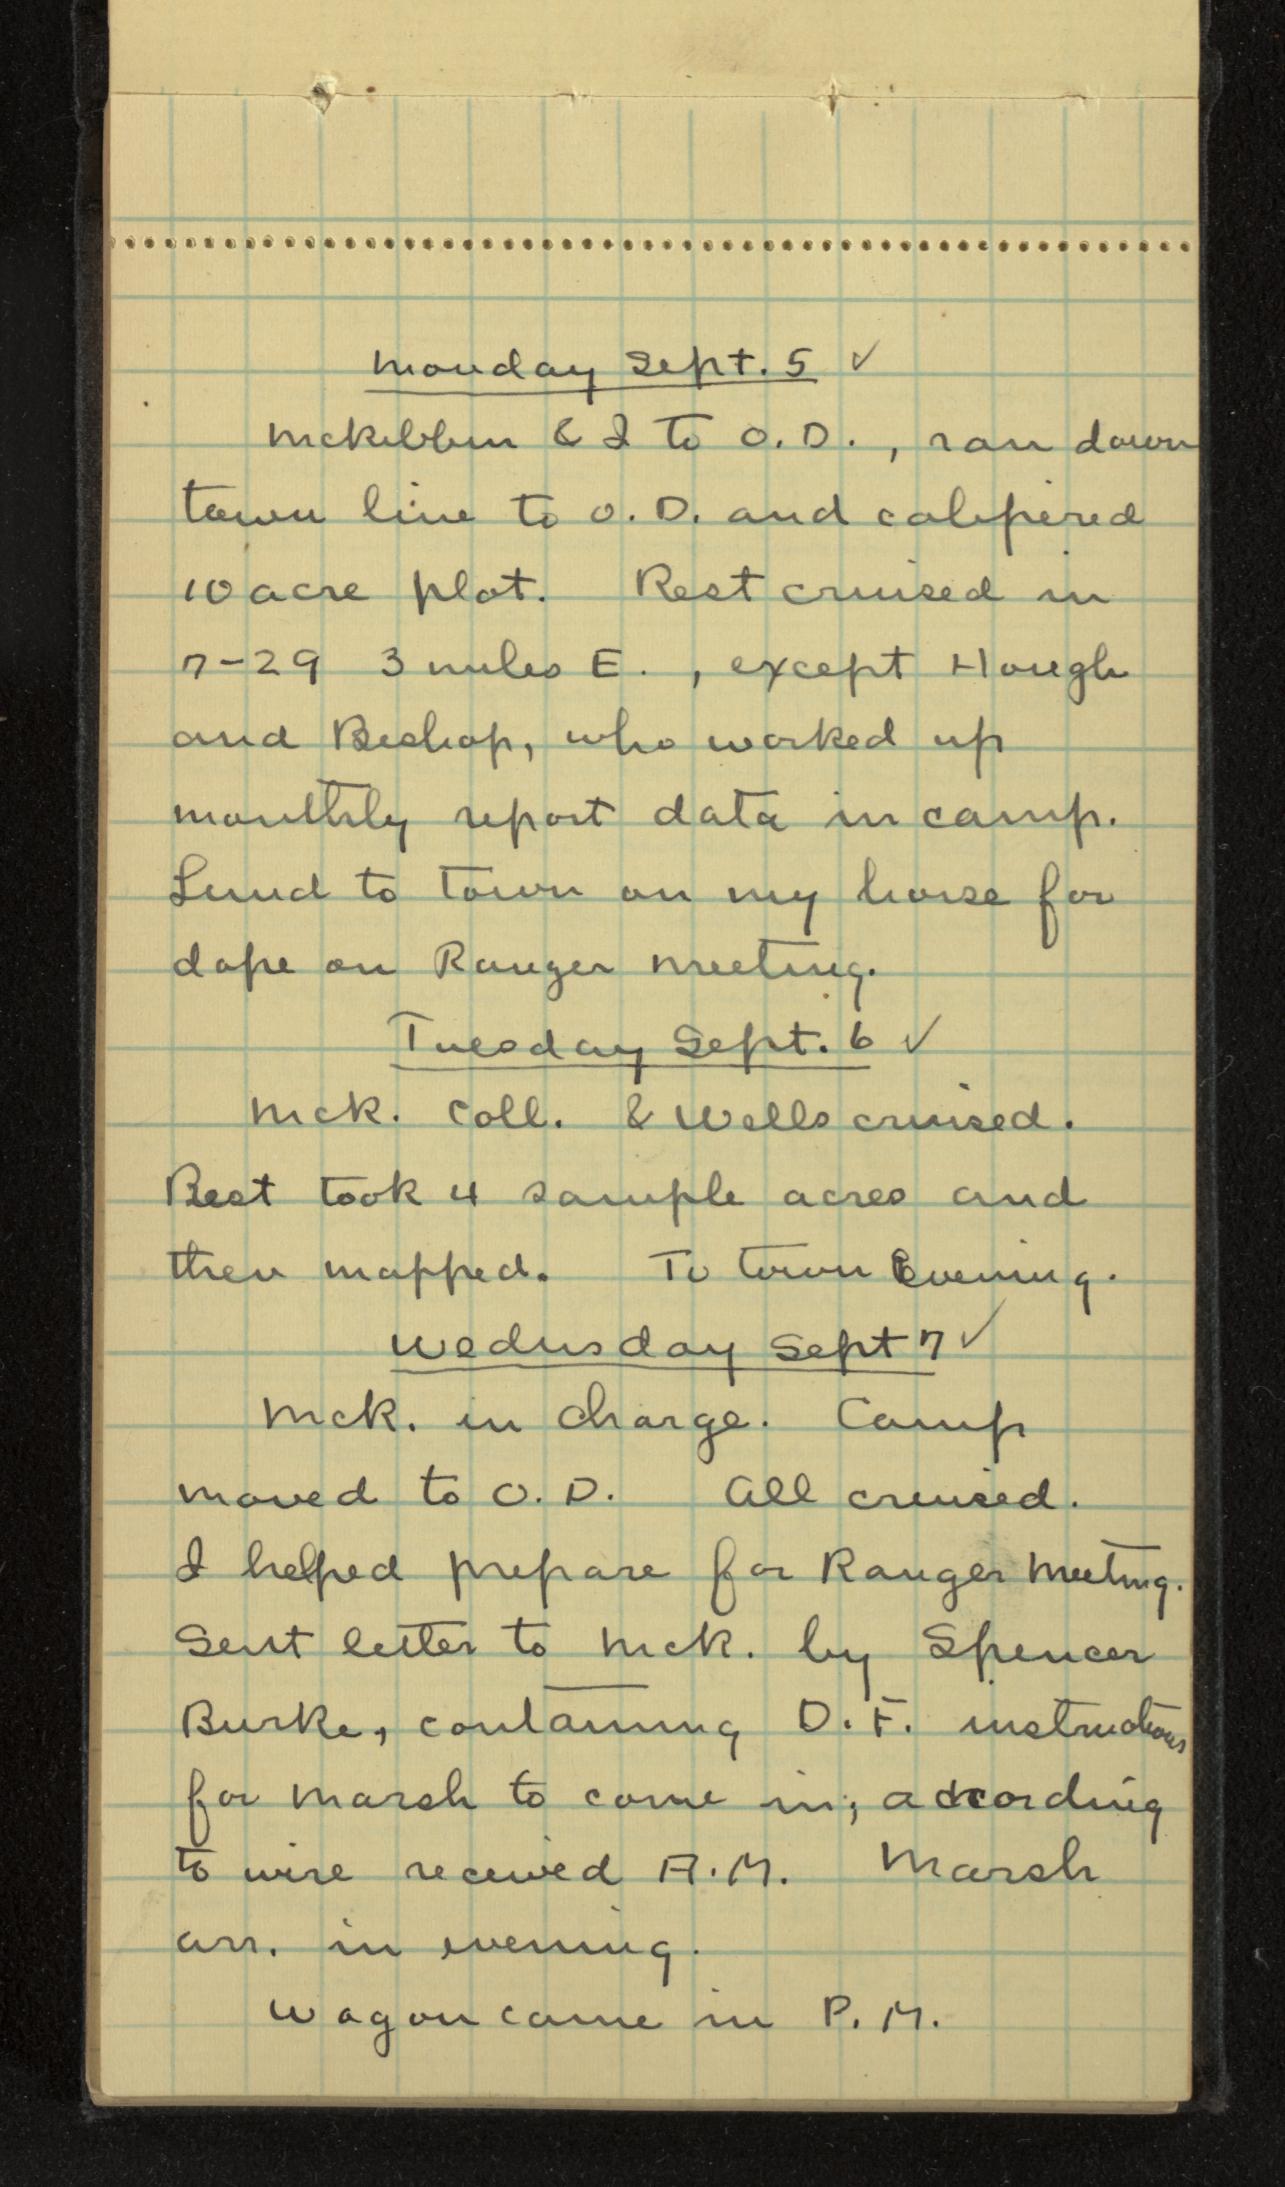 Monday Sept. 5 ✓
McKibben & I to O.D., ran down
town line to O.D. and calipered
10 acre plot. Rest cruised in
7-29 3 miles E., except Hough
and Bishop, who worked up
monthly report data in camp.
Lund to town on my horse for
dope on Ranger meeting.
Tuesday Sept. 6 ✓
McK. Coll. & Wells cruised.
Rest took 4 sample acres and
then mapped. To town Evening.
Wednsday Sept 7 ✓
McK. in charge. Camp
moved to O.D. All cruised.
I helped prepare for Ranger Meeting.
Sent letter to McK. by Spencer
Burke, containing D.F. instructions
for Marsh to come in; according
to wire received A.M. Marsh
arr. in evening.
Wagon came in P.M.